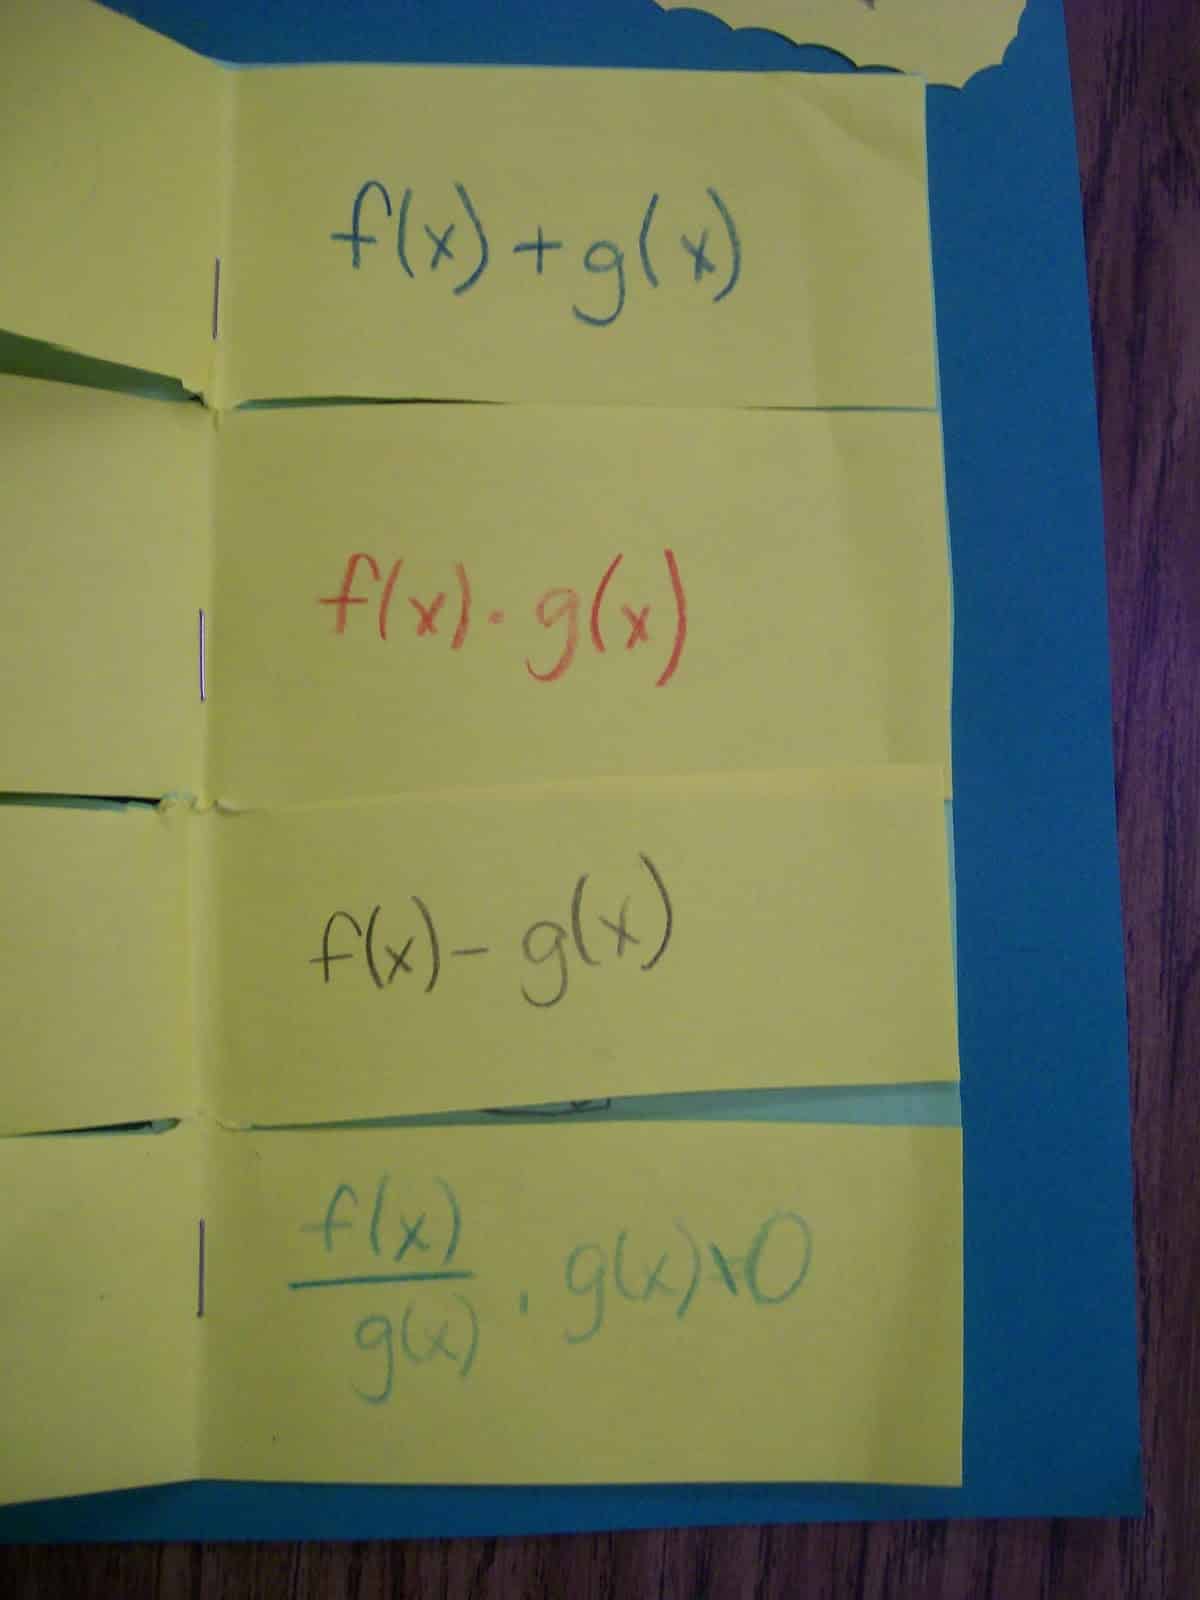 f(x) + g(x)
f(x) · g(x)
f(x) - g(x)
f(x)/g(x) , g(x) ≠ 0